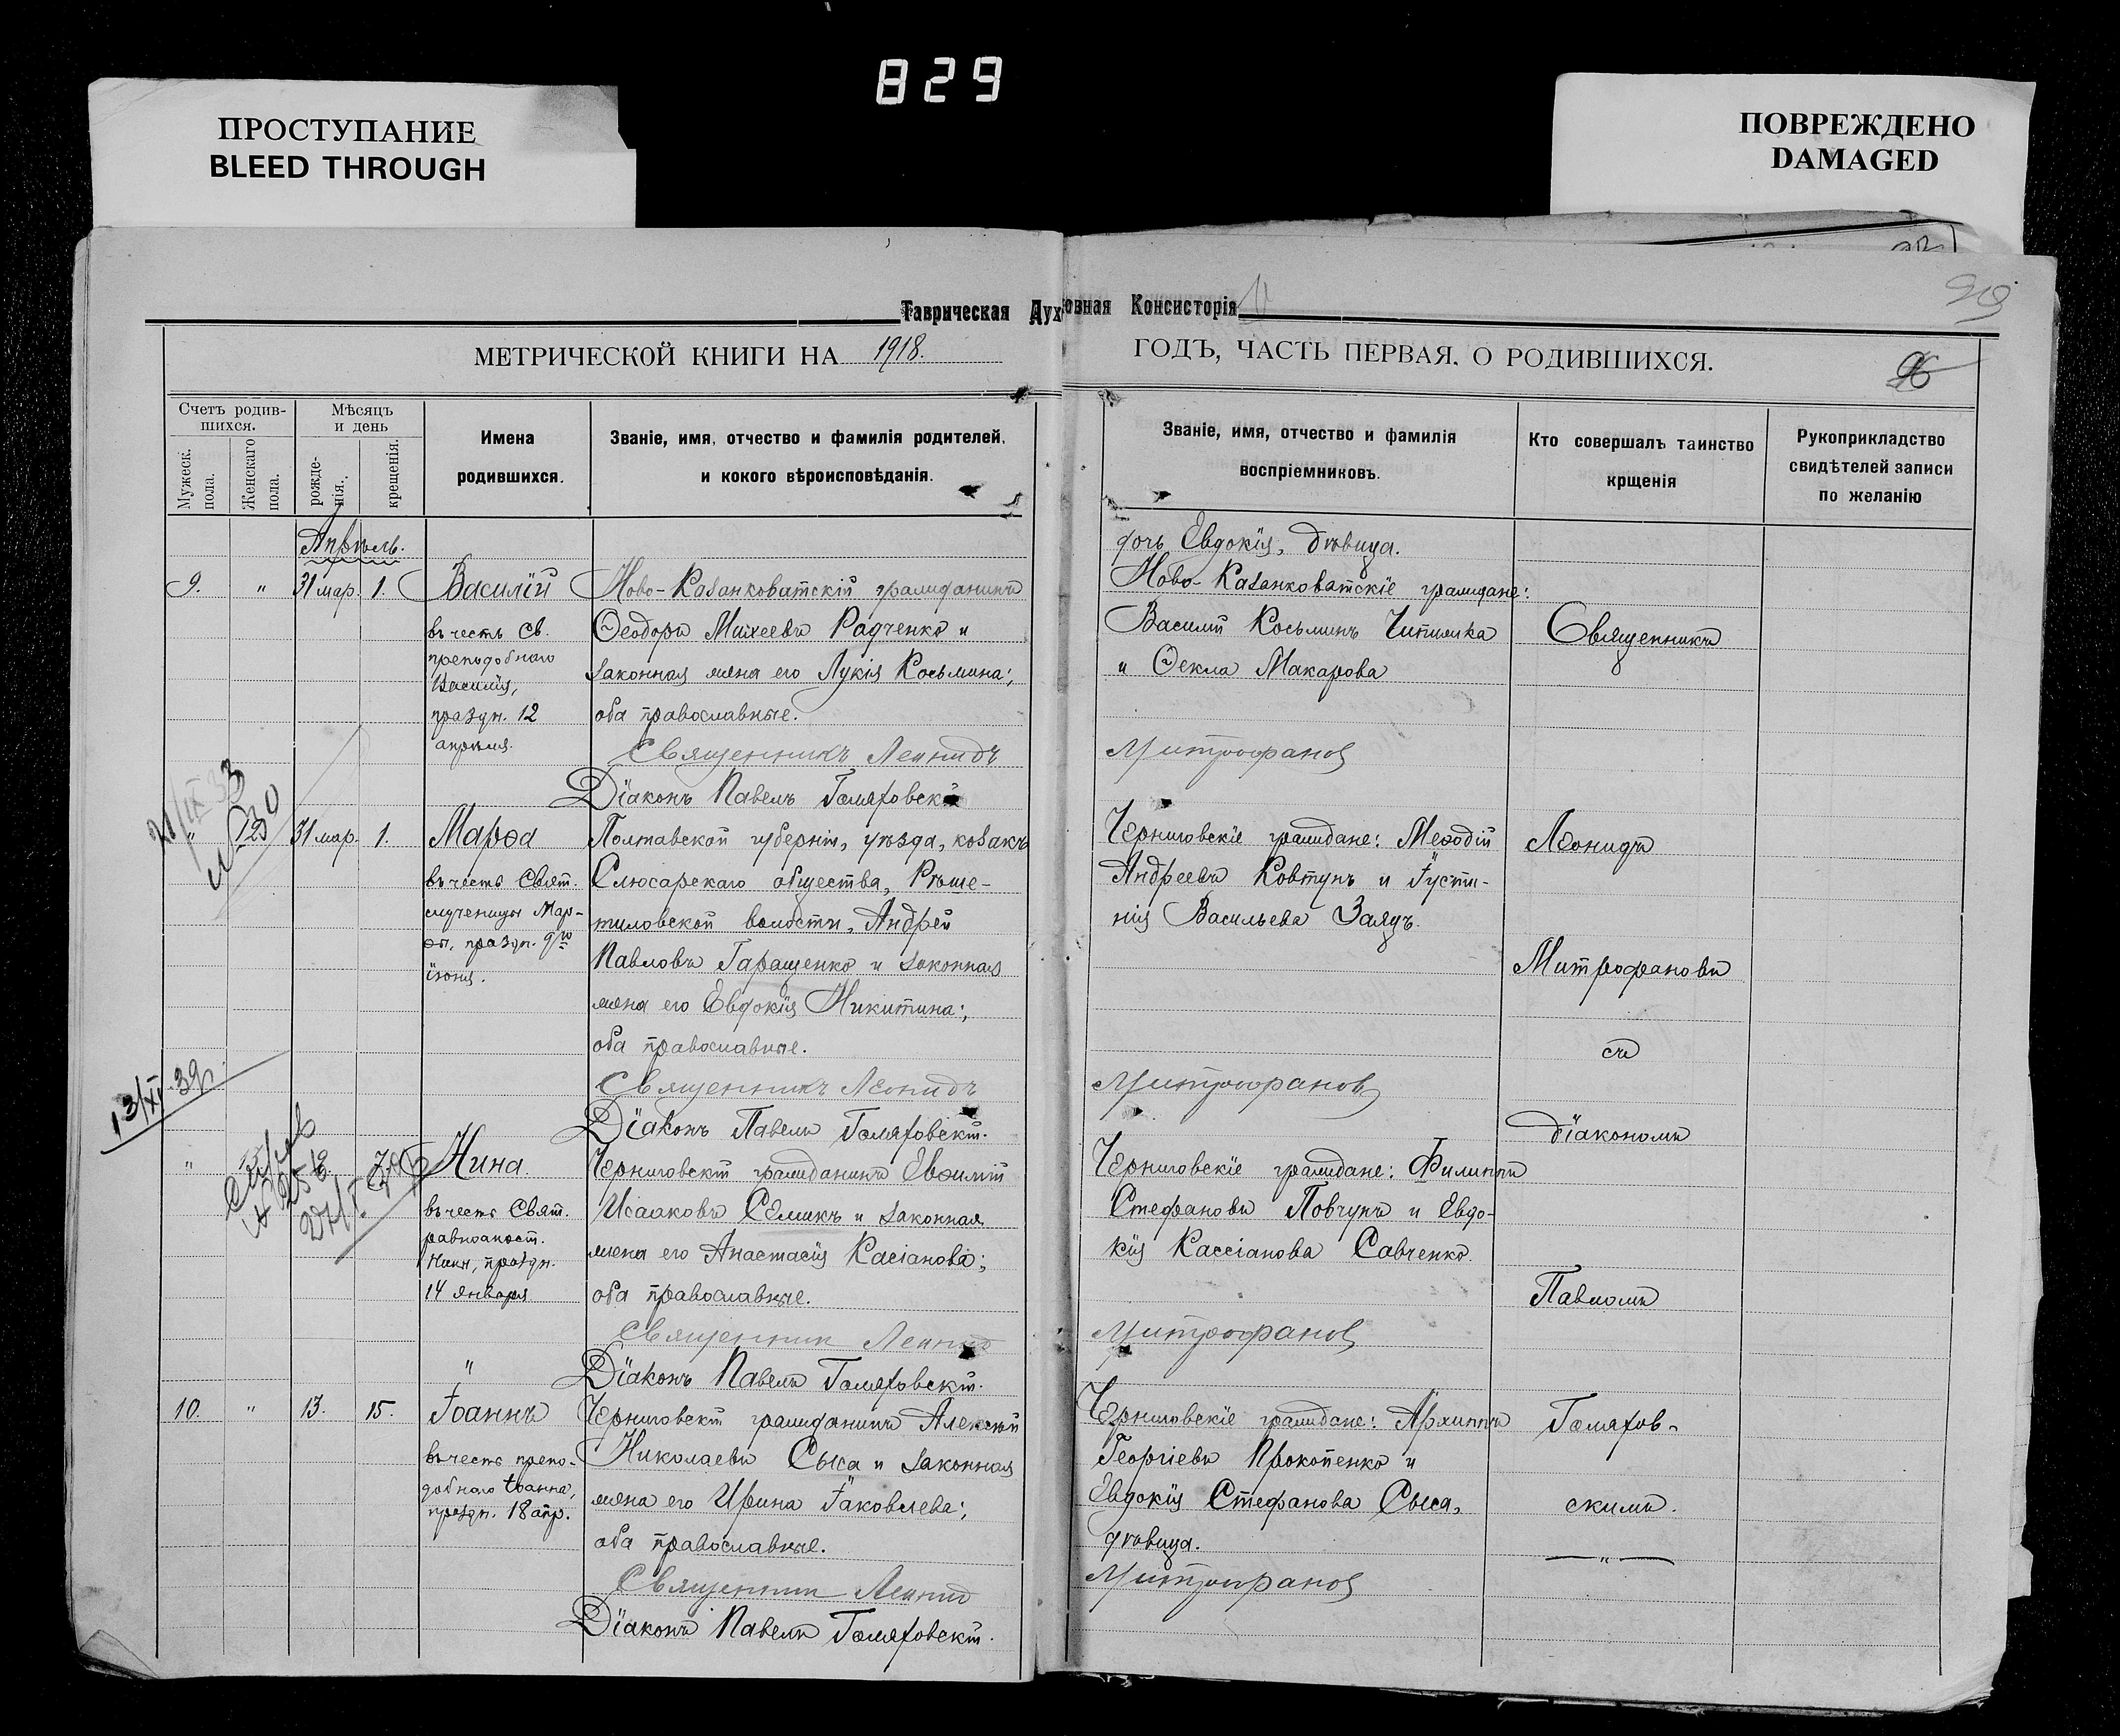 829
ПРОСТУПАНИЕ
BLEED THROUGH
ПОВРЕЖДЕНО
DAMAGED
Таврическая Духовная Консисторія
МЕТРИЧЕСКОЙ КНИГИ НА 1918. ГОДЪ, ЧАСТЬ ПЕРВАЯ, О РОДИВШИХСЯ.
96
Счетъ родив-
шихся.
Мужеск. пола.
Женскаго пола.
Мѣсяцъ
и день
рожде-
нія.
крещенія.
Имена
родившихся.
Званіе, имя, отчество и фамилія родителей,
и кокого вѣроисповѣданія.
Званіе, имя, отчество и фамилія
воспріемниковъ.
Кто совершалъ таинство
крщенія
Рукоприкладство
свидѣтелей записи
по желанію
Апрѣль.
дочь Евдокія, дѣвица.
9. " 31 мар. 1. Василій
въ честь св.
преподобнаго
Василія,
праздн. 12
апрѣля.
Ново-Казанковатскій гражданинъ
Ѳеодоръ Михеевъ Радченко и
законная жена его Лукія Косьмина;
оба православные.
Священникъ Леонидъ
Діаконъ Павелъ
Ново-Казанковатскіе граждане:
Василій Косьминъ
и Ѳекла Макарова
Митрофановъ
Священникъ
" 31 мар. 1. Марѳа
въ честь Свят.
мученицы Мар-
ѳы, праздн. 9го
іюня.
Полтавской губерніи, уѣзда, козакъ
Слюсарскаго общества, Рѣше-
тиловской волости, Андрей
Павловъ Гаращенко и законная
жена его Евдокія Никитина;
оба православные.
Священникъ Леонидъ
Діаконъ Павелъ
Черниговскіе граждане: Меѳодій
Андреевъ Ковтунъ и Іусти-
нія Васильева Заяцъ.
Митрофановъ
Леонидъ
Митрофановъ
съ
діакономъ
13/XI 39г.
" Нина.
въ честь Свят.
равноапост.
Нины, праздн.
14 января
Черниговскій гражданинъ Евѳимій
Исааковъ Семикъ и законная
жена его Анастасія Касіанова;
оба православные.
Священник Леонид
Діаконъ Павелъ
Черниговскіе граждане: Филиппъ
Стефановъ Повчунъ и Евдо-
кія Кассіанова Савченко.
Митрофановъ
Павломъ
"
10. " 13. 15. Іоаннъ
въ честь препо-
добнаго Іоанна,
праздн. 18 апр.
Черниговскій гражданинъ Алексѣй
Николаевъ Сыса и законная
жена его Ирина Іаковлева;
оба православные.
Священник Леонид
Діаконъ Павелъ
Черниговскіе граждане: Архиппъ
Георгіевъ Прокопенко и
Евдокія Стефанова Сыса,
дѣвица.
Митрофановъ
скимъ.
"